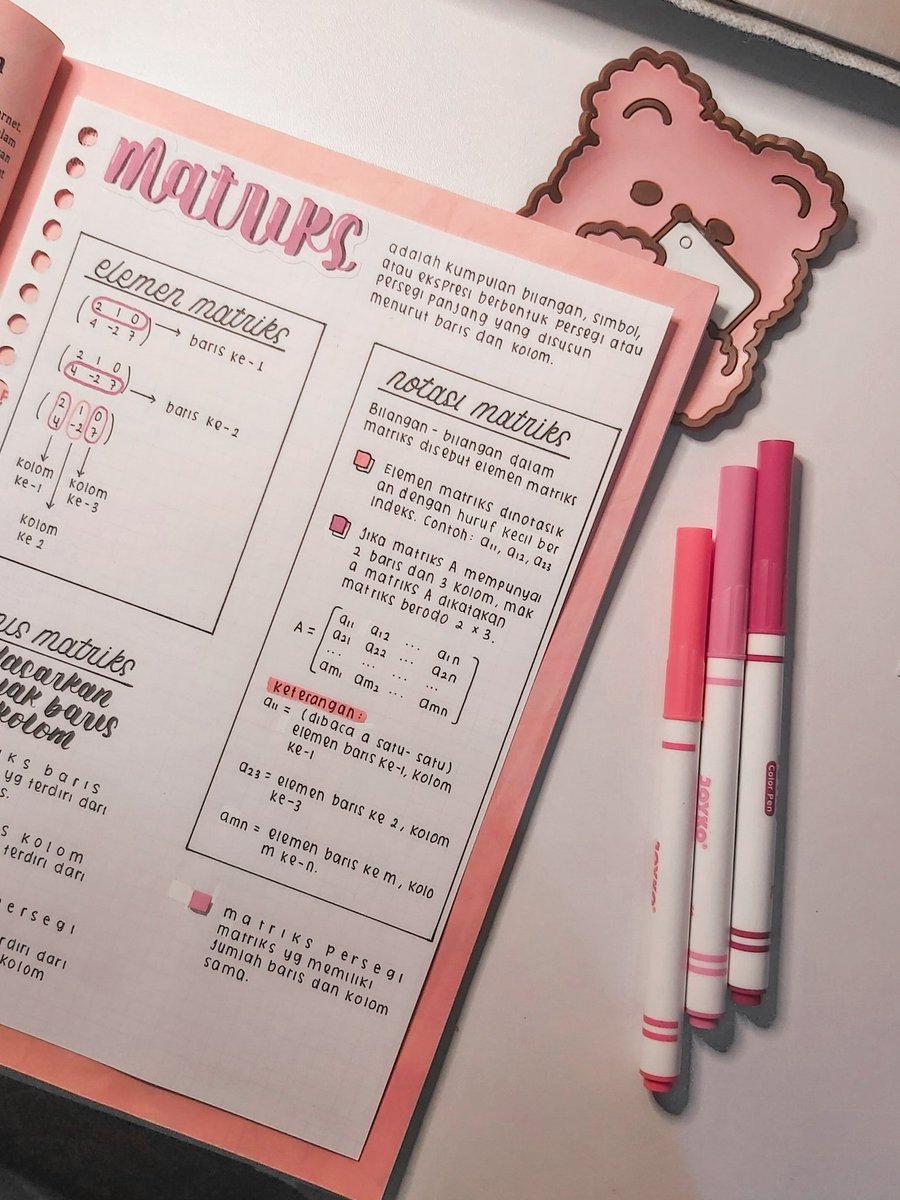 matriks
adalah kumpulan bilangan, simbol,
atau ekspresi berbentuk persegi atau
persegi panjang yang disusun
menurut baris dan kolom.
elemen matriks
( 2 1 0
4 -2 7 ) → baris ke-1
( 2 1 0
4 -2 7 ) → baris ke-2
( 2 1 0
4 -2 7 )
kolom
ke-1
kolom
ke-3
kolom
ke 2
notasi matriks
Bilangan-bilangan dalam
matriks disebut elemen matriks
Elemen matriks dinotasik
an dengan huruf kecil ber
indeks. Contoh: a11, a12, a23
Jika matriks A mempunyai
2 baris dan 3 kolom, mak
a matriks A dikatakan
matriks berodo 2 × 3.
A = [ a11 a12 ... a1n
a21 a22 ... a2n
... ... ...
am1 am2 ... amn ]
keterangan:
a11 = (dibaca a satu-satu)
elemen baris ke-1, kolom
ke-1
a23 = elemen baris ke 2, kolom
ke-3
amn = elemen baris ke m, kolo
m ke-n.
matriks
baris
kolom
baris
yg terdiri dari
kolom
terdiri dari
dari
kolom
matriks persegi
matriks yg memiliki
jumlah baris dan kolom
sama.
JOYKO
JOYKO
Color Pen